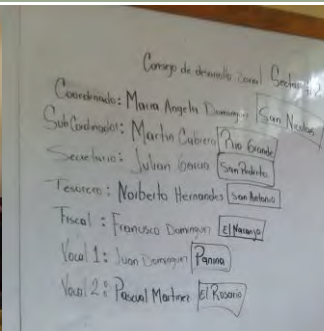 Consejo de desarrollo Zonal Sector # 2
Coordinado: Maria Angela Dominguez San Nicolas
SubCordinador: Martin Cabrera Rio Grande
Secretario: Julian Garcia San Pedrito
Tesorero: Norberto Hernandes San Antonio
Fiscal: Francisco Dominguez El Naranjo
Vocal 1: Juan Dominguez Panina
Vocal 2: Pascual Martinez El Rosario